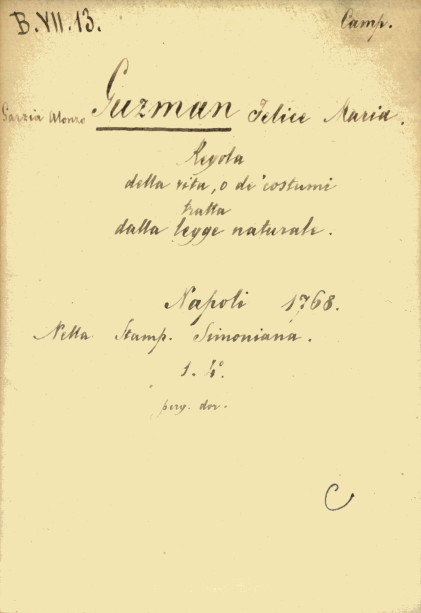 B.VII.13. Camp.
Garzia Alonzo Guzman Felice Maria.
Regola
della vita, o de' costumi
tratta
dalla legge naturale.
Napoli 1768.
Nella Stamp. Simoniana.
1. 4°.
perg. dor.
C